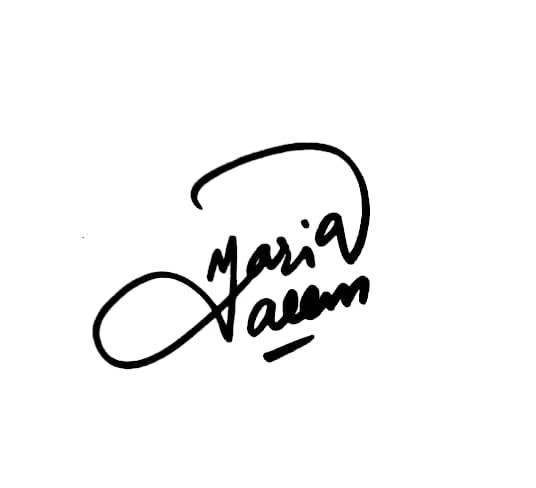 Maria
Naeem